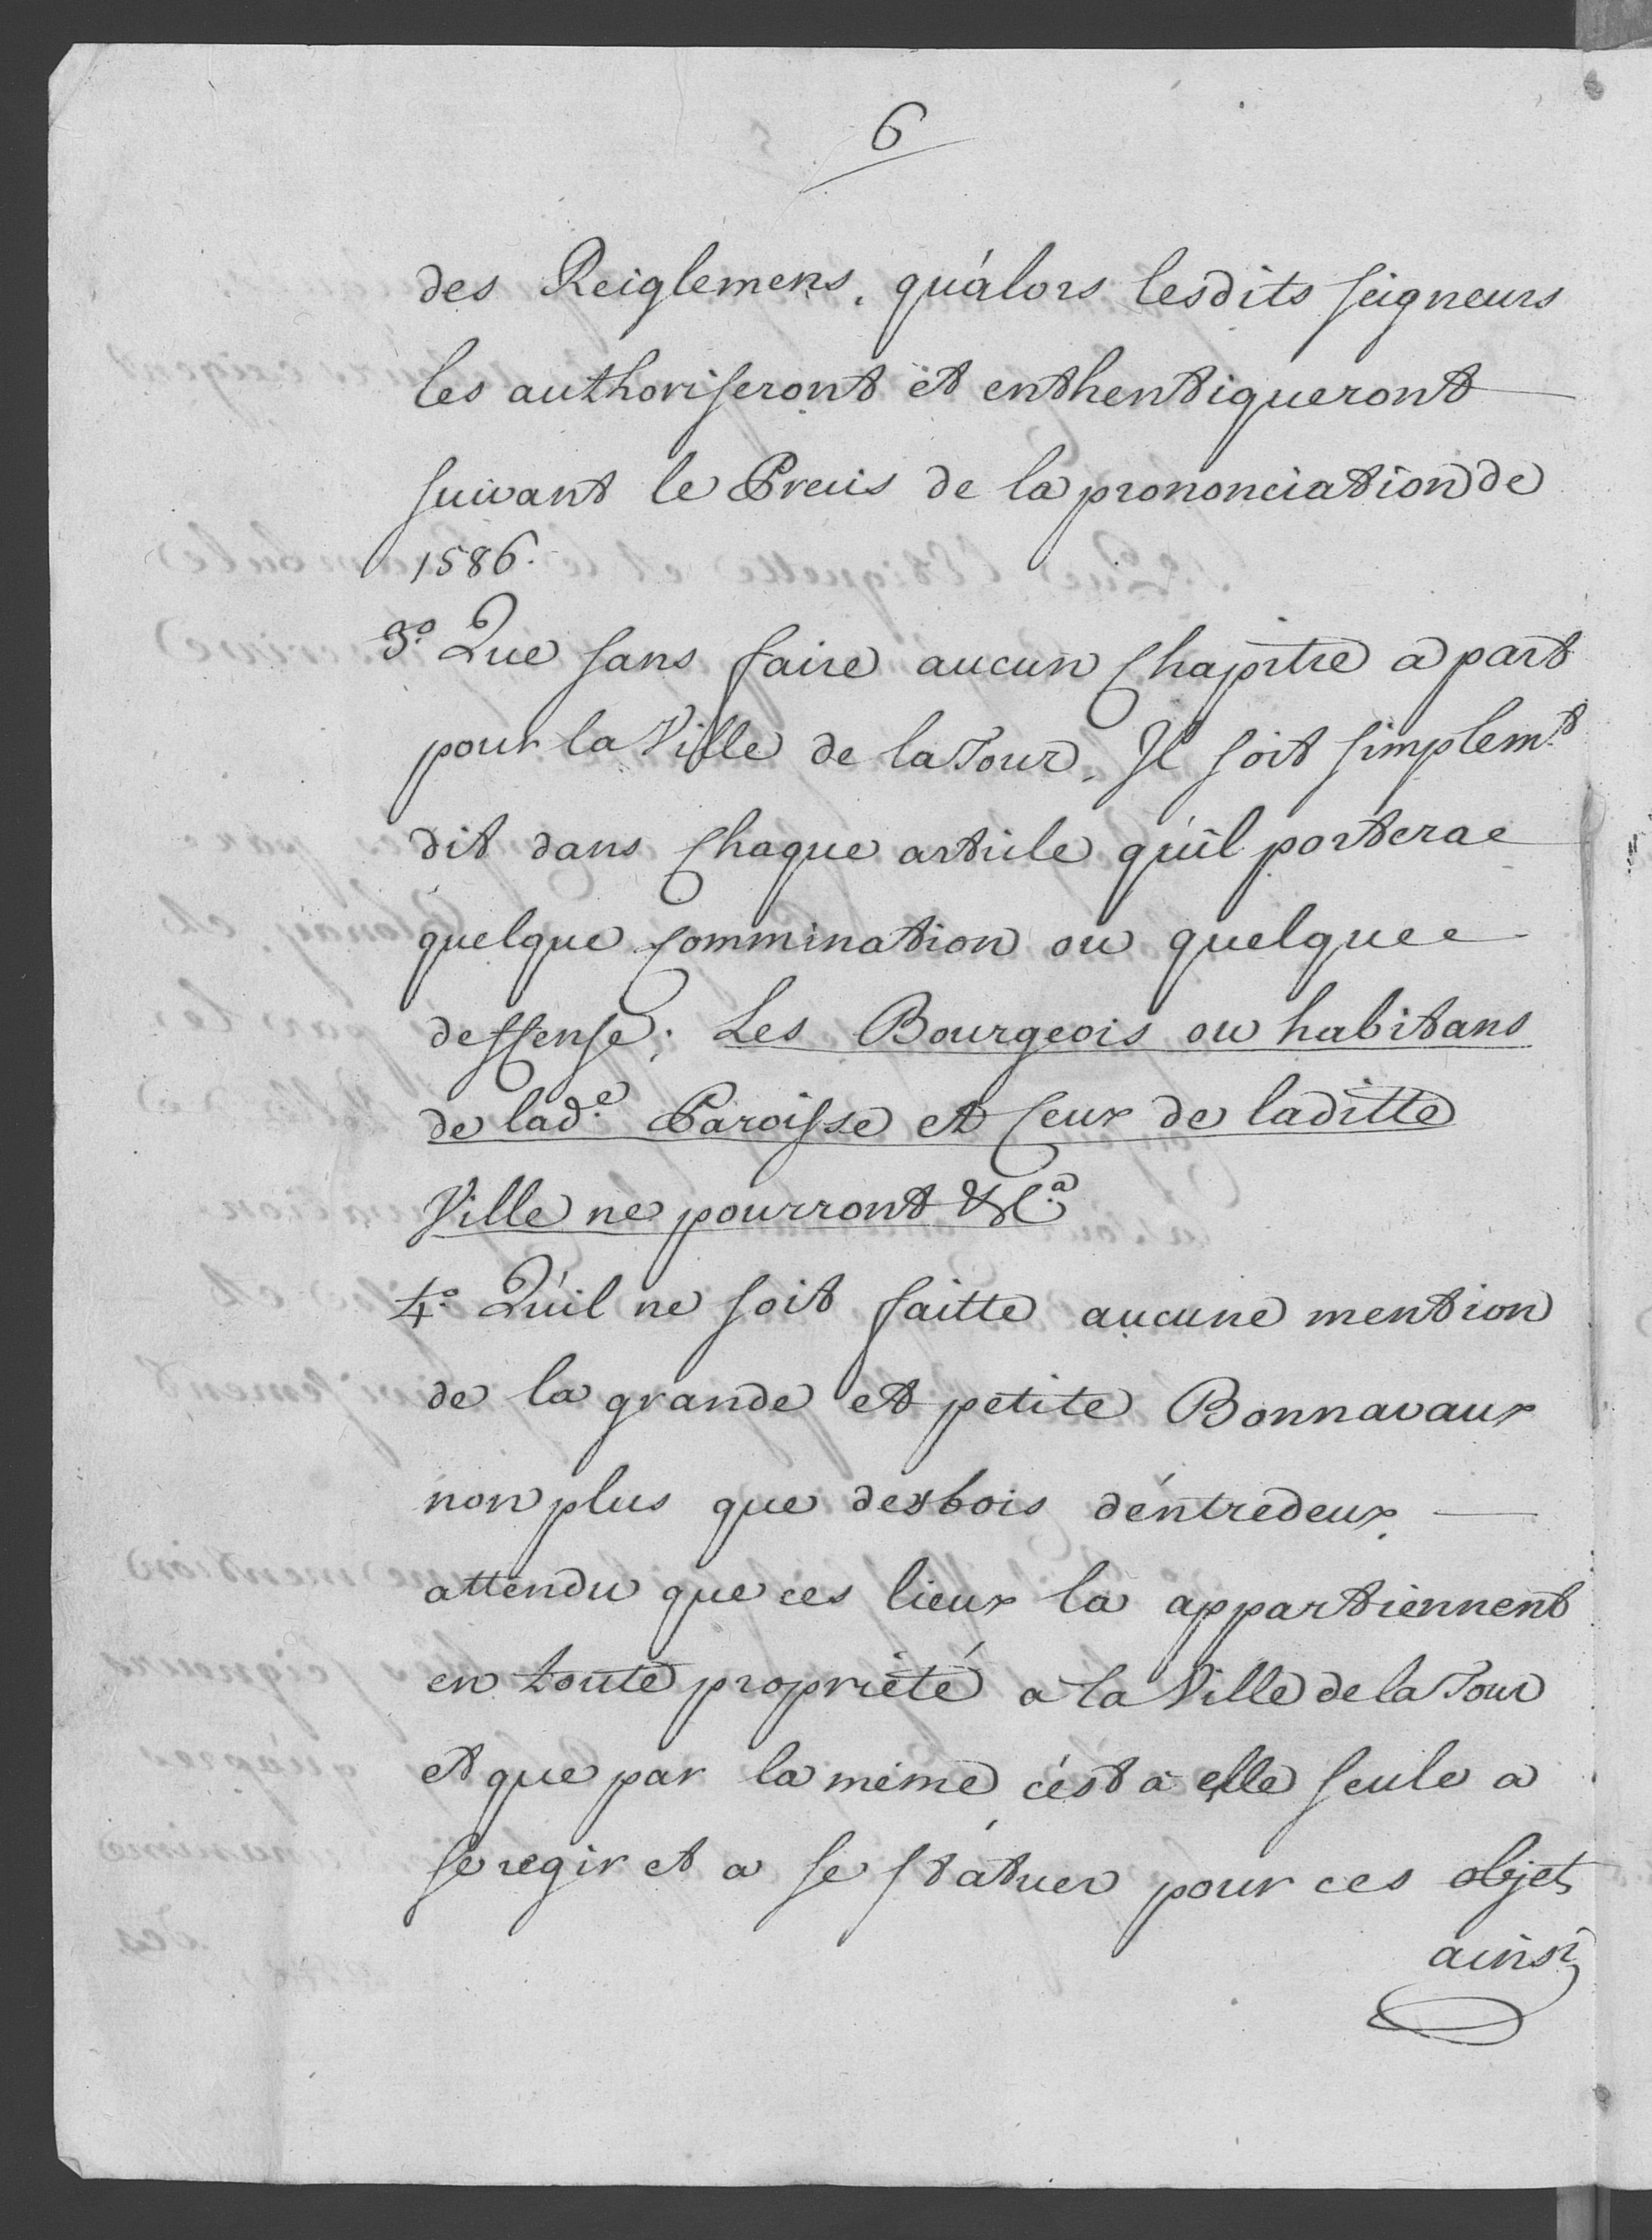 6
des Reiglemens, qu'alors lesdits seigneurs
les authoriseront et enthentiqueront
suivant le Precis de la prononciation de
1586.
3.° Que sans faire aucun Chapitre a part
pour la Ville de la Tour, Il soit simplem.t
dit dans Chaque article qu'il portera
quelque Commination ou quelque
deffense; Les Bourgeois ou habitans
de lad.e Paroisse et Ceux de laditte
Ville ne pourront &C.a
4.° Qu'il ne soit faitte aucune mention
de la grande et petite Bonnavaux
non plus que des bois d'entredeux
attendu que ces lieux la appartiennent
en toute propriété a la Ville de la Tour
et que par la même c'est à elle seule a
se regir et a se statuer pour ces objets
ainsi